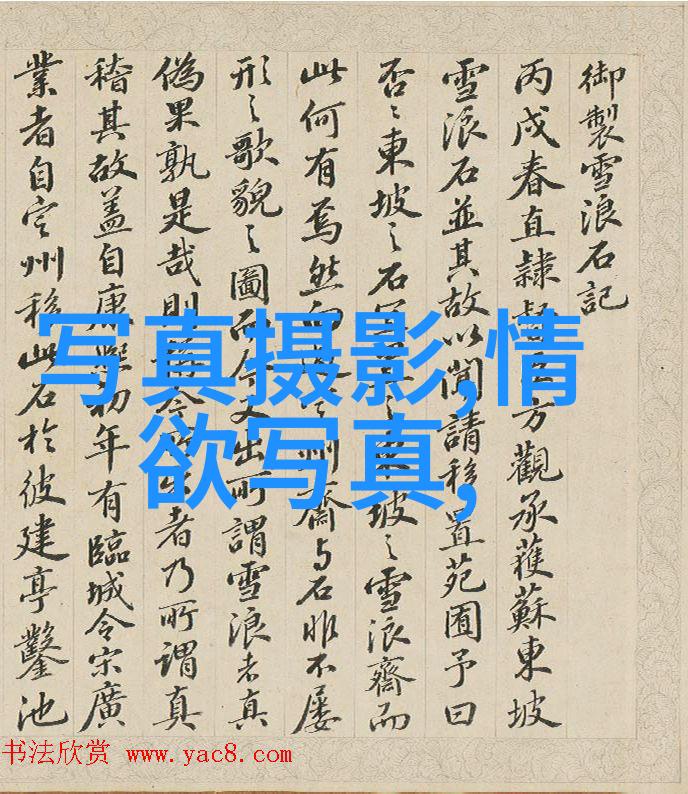 写真摄影,情
欲写真,
御製雪浪石記
丙戌春直隷督臣方觀承獲蘇東坡
雪浪石並其故以聞請移置苑囿予曰
否〻東坡之石坡之雪浪齋而
此何有焉然而州齋与石非不屡
形之歌貌之圖而今又出所謂雪浪者真
偽果孰是哉則今者乃所謂真
稽其故盖自康熙初年有臨城令宋廣
業者自定州移此石於彼建亭鑿池
书法欣赏 www.yac8.com